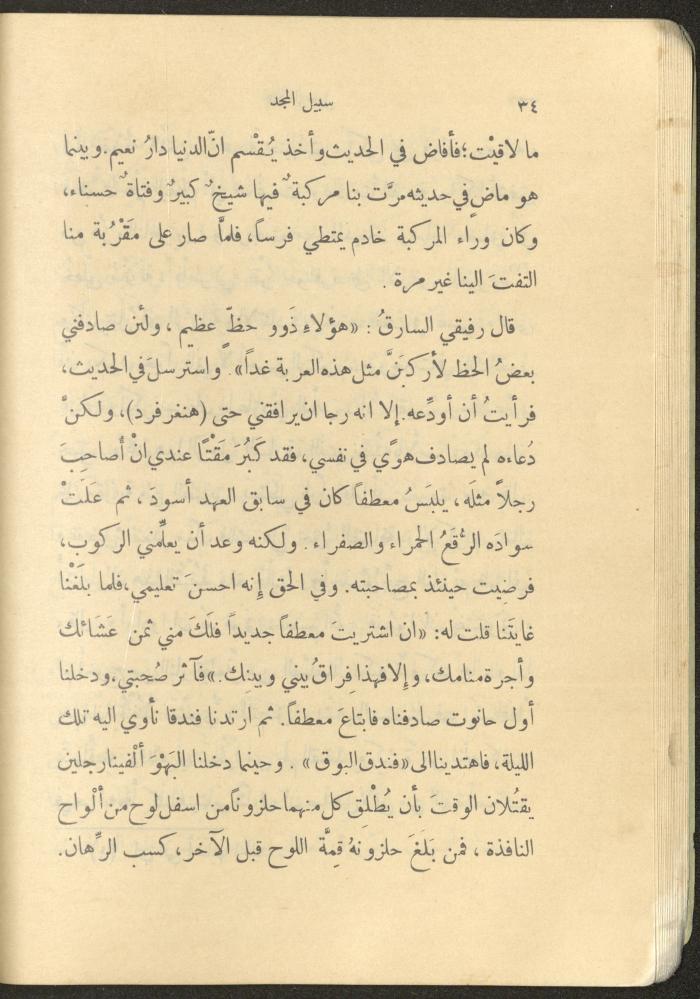 ٣٤ سبيل المجد
ما لاقيْت؛ فأفاض في الحديث وأخذ يُقْسم انّ الدنيا دارُ نعيم. وبينما
هو ماضٍ في حديثه مرَّت بنا مركبةٌ فيها شيخٌ كبيرٌ وفتاةٌ حسناء،
وكان وراء المركبة خادم يمتطي فرساً، فلمَّا صار على مَقْرُبة منا
التفتَ الينا غير مرة .
قال رفيقي السارقُ : «هؤلاءِ ذَوو حظّ عظيم ، ولئن صادفني
بعضُ الحظ لأركبَنَّ مثل هذه العربة غداً» . واسترسلَ في الحديث،
فرأيتُ أن أودّعه. إلا انه رجا ان يرافقني حتى (هنغرفرد)، ولكنَّ
دُعاءه لم يصادف هوًى في نفسي، فقد كَبُرَ مَقْتًا عندي انْ أُصاحبَ
رجلاً مثلَه ، يلبَسُ معطفاً كان في سابق العهد أسودَ ، ثم عَلَتْ
سوادَه الرُّقَعُ الحمراء والصفراء . ولكنه وعد أن يعلّمني الركوب،
فرضيت حينئذ بمصاحبته. وفي الحق إِنه احسنَ تعليمي، فلما بلَغْنا
غايتَنا قلت له: «ان اشتريتَ معطفاً جديداً فَلَكَ مني ثمن عَشَائك
وأجرة منامك، وإلا فهذا فِراقُ بيني وبينك.» فآثر صُحبتي، ودخلنا
أول حانوت صادفناه فابتاعَ معطفاً. ثم ارتدنا فندقا نأوي اليه تلك
الليلة، فاهتدينا الى «فندق البوق» . وحينما دخلنا البَهْوَ ألْفينا رجلين
يقتُلان الوقتَ بأن يُطْلِق كل منهما حلزوناً من اسفل لوح من ألْواح
النافذة ، فمن بَلَغَ حلزونهُ قِمَّة اللوح قبل الآخر، كسب الرّهان.